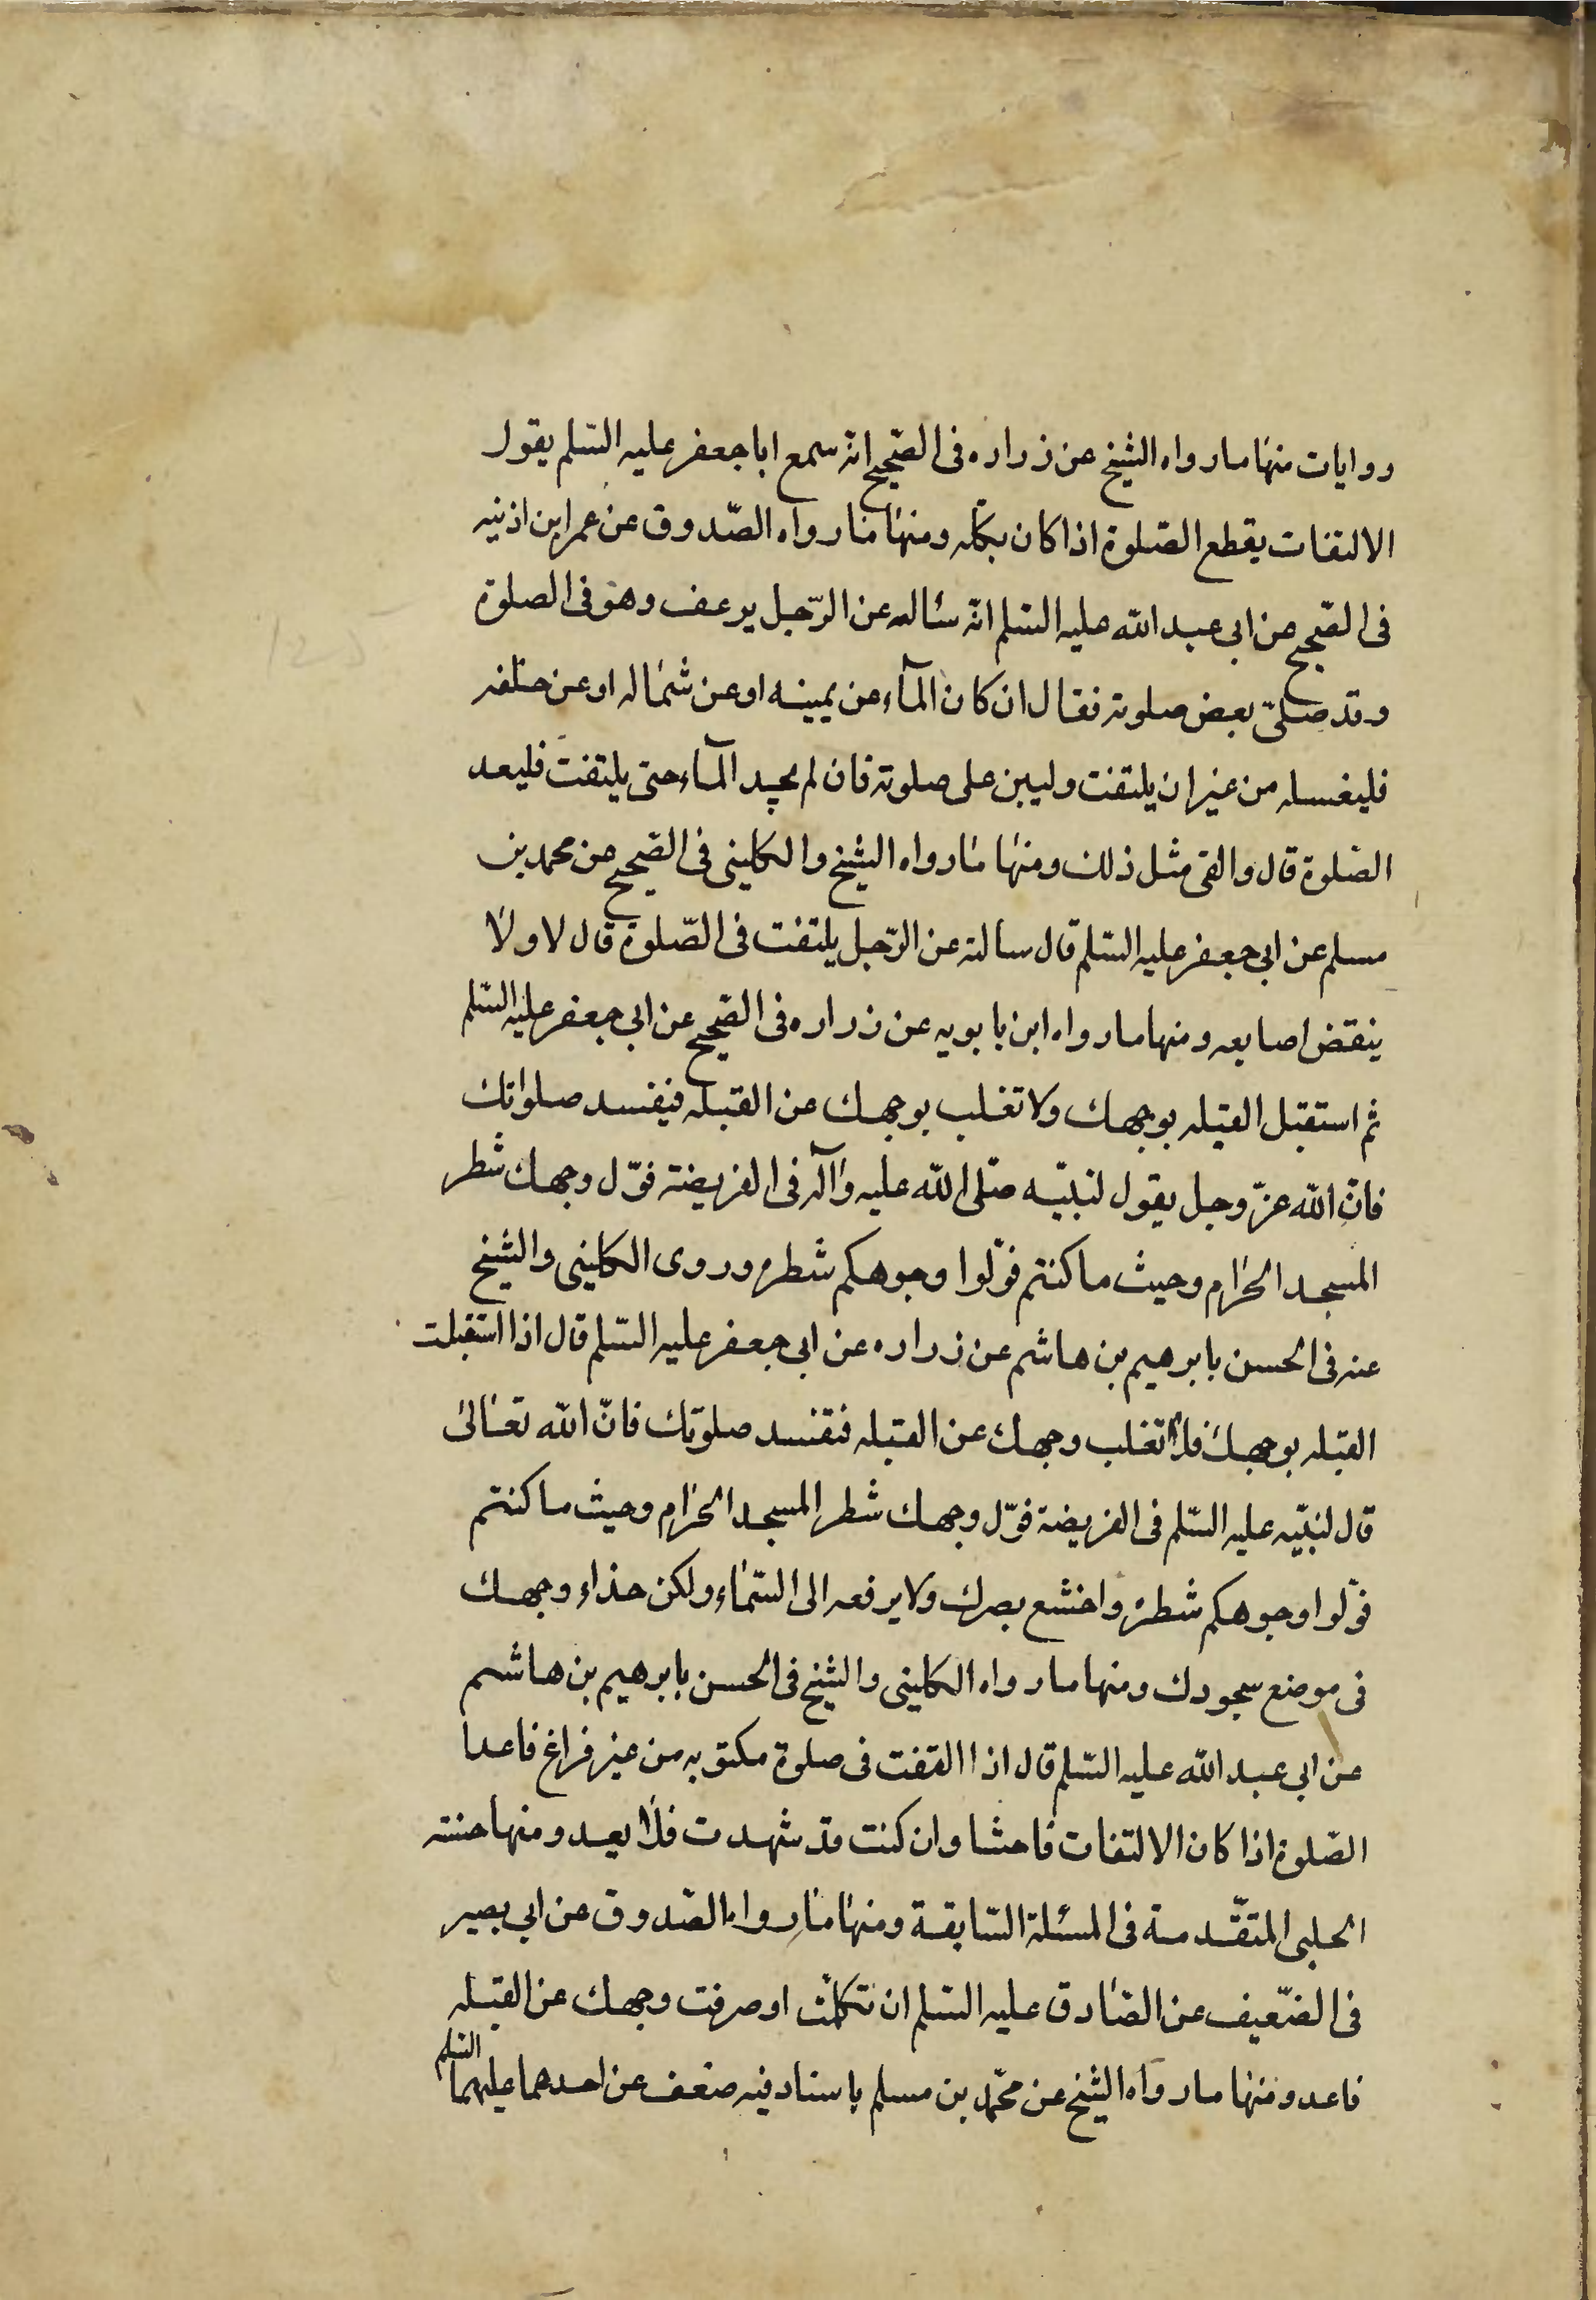 روايات منها ما رواه الشيخ عن زراره فى الصّحيح انّه سمع ابا جعفر عليه السّلم يقول
الالتفات يقطع الصّلوة اذا كان بكلّه ومنها ما رواه الصّدوق عن عمر ابن اذنيه
فى الصّحيح عن ابى عبد الله عليه السّلم انّه سئاله عن الرّجل يرعف وهو فى الصلوة
وقد صلّى بعض صلوته فقال ان كان المآء عن يمينه او عن شماله او عن خلفه
فليغسله من غير ان يلتفت وليبن على صلوته فان لم يجد المآء حتى يلتفت فليعد
الصّلوة قال والقى مثل ذلك ومنها ما رواه الشيخ والكلينى فى الصّحيح عن محمد بن
مسلم عن ابى جعفر عليه السّلم قال سالته عن الرّجل يلتفت فى الصّلوة قال لا ولا
ينقض اصابعه ومنها ما رواه ابن بابويه عن زراره فى الصّحيح عن ابى جعفر عليه السّلم
ثم استقبل القبله بوجهك ولا تغلب بوجهك عن القبله فيفسد صلواتك
فانّ الله عزّ وجل يقول لنبيّه صلّى الله عليه وآله فى الفريضة فوّل وجهك شطر
المسجد الحرام وحيث ما كنتم فوّلوا وجوهكم شطره وروى الكلينى والشيخ
عنه فى الحسن بابرهيم بن هاشم عن زراره عن ابى جعفر عليه السّلم قال اذا استقبلت
القبله بوجهك فلا تغلب وجهك عن القبله فتفسد صلوتك فانّ الله تعالى
قال لنبيّه عليه السّلم فى الفريضة فوّل وجهك شطر المسجد الحرام وحيث ما كنتم
فوّلوا وجوهكم شطره واخشع بصرك ولا يرفعه الى السّماء ولكن حذاء وجهك
فى موضع سجودك ومنها ما رواه الكلينى والشيخ فى الحسن بابرهيم بن هاشم
عن ابى عبد الله عليه السّلم قال اذا التفت فى صلوة مكتوبه من غير فراغ فاعد ا
الصّلوة اذا كان الالتفات فاحشا وان كنت قد شهدت فلا يعد ومنها حسنته
الحلبى المتقّدمة فى المسئلة السّابقة ومنها ما رواه الصّدوق عن ابى بصير
فى الضّعيف عن الصّادق عليه السّلم ان تكلّمت او صرفت وجهك عن القبله
فاعد ومنها ما رواه الشيخ عن محمّد بن مسلم باسناد فيه ضعف عن احدهما عليهما السّلم